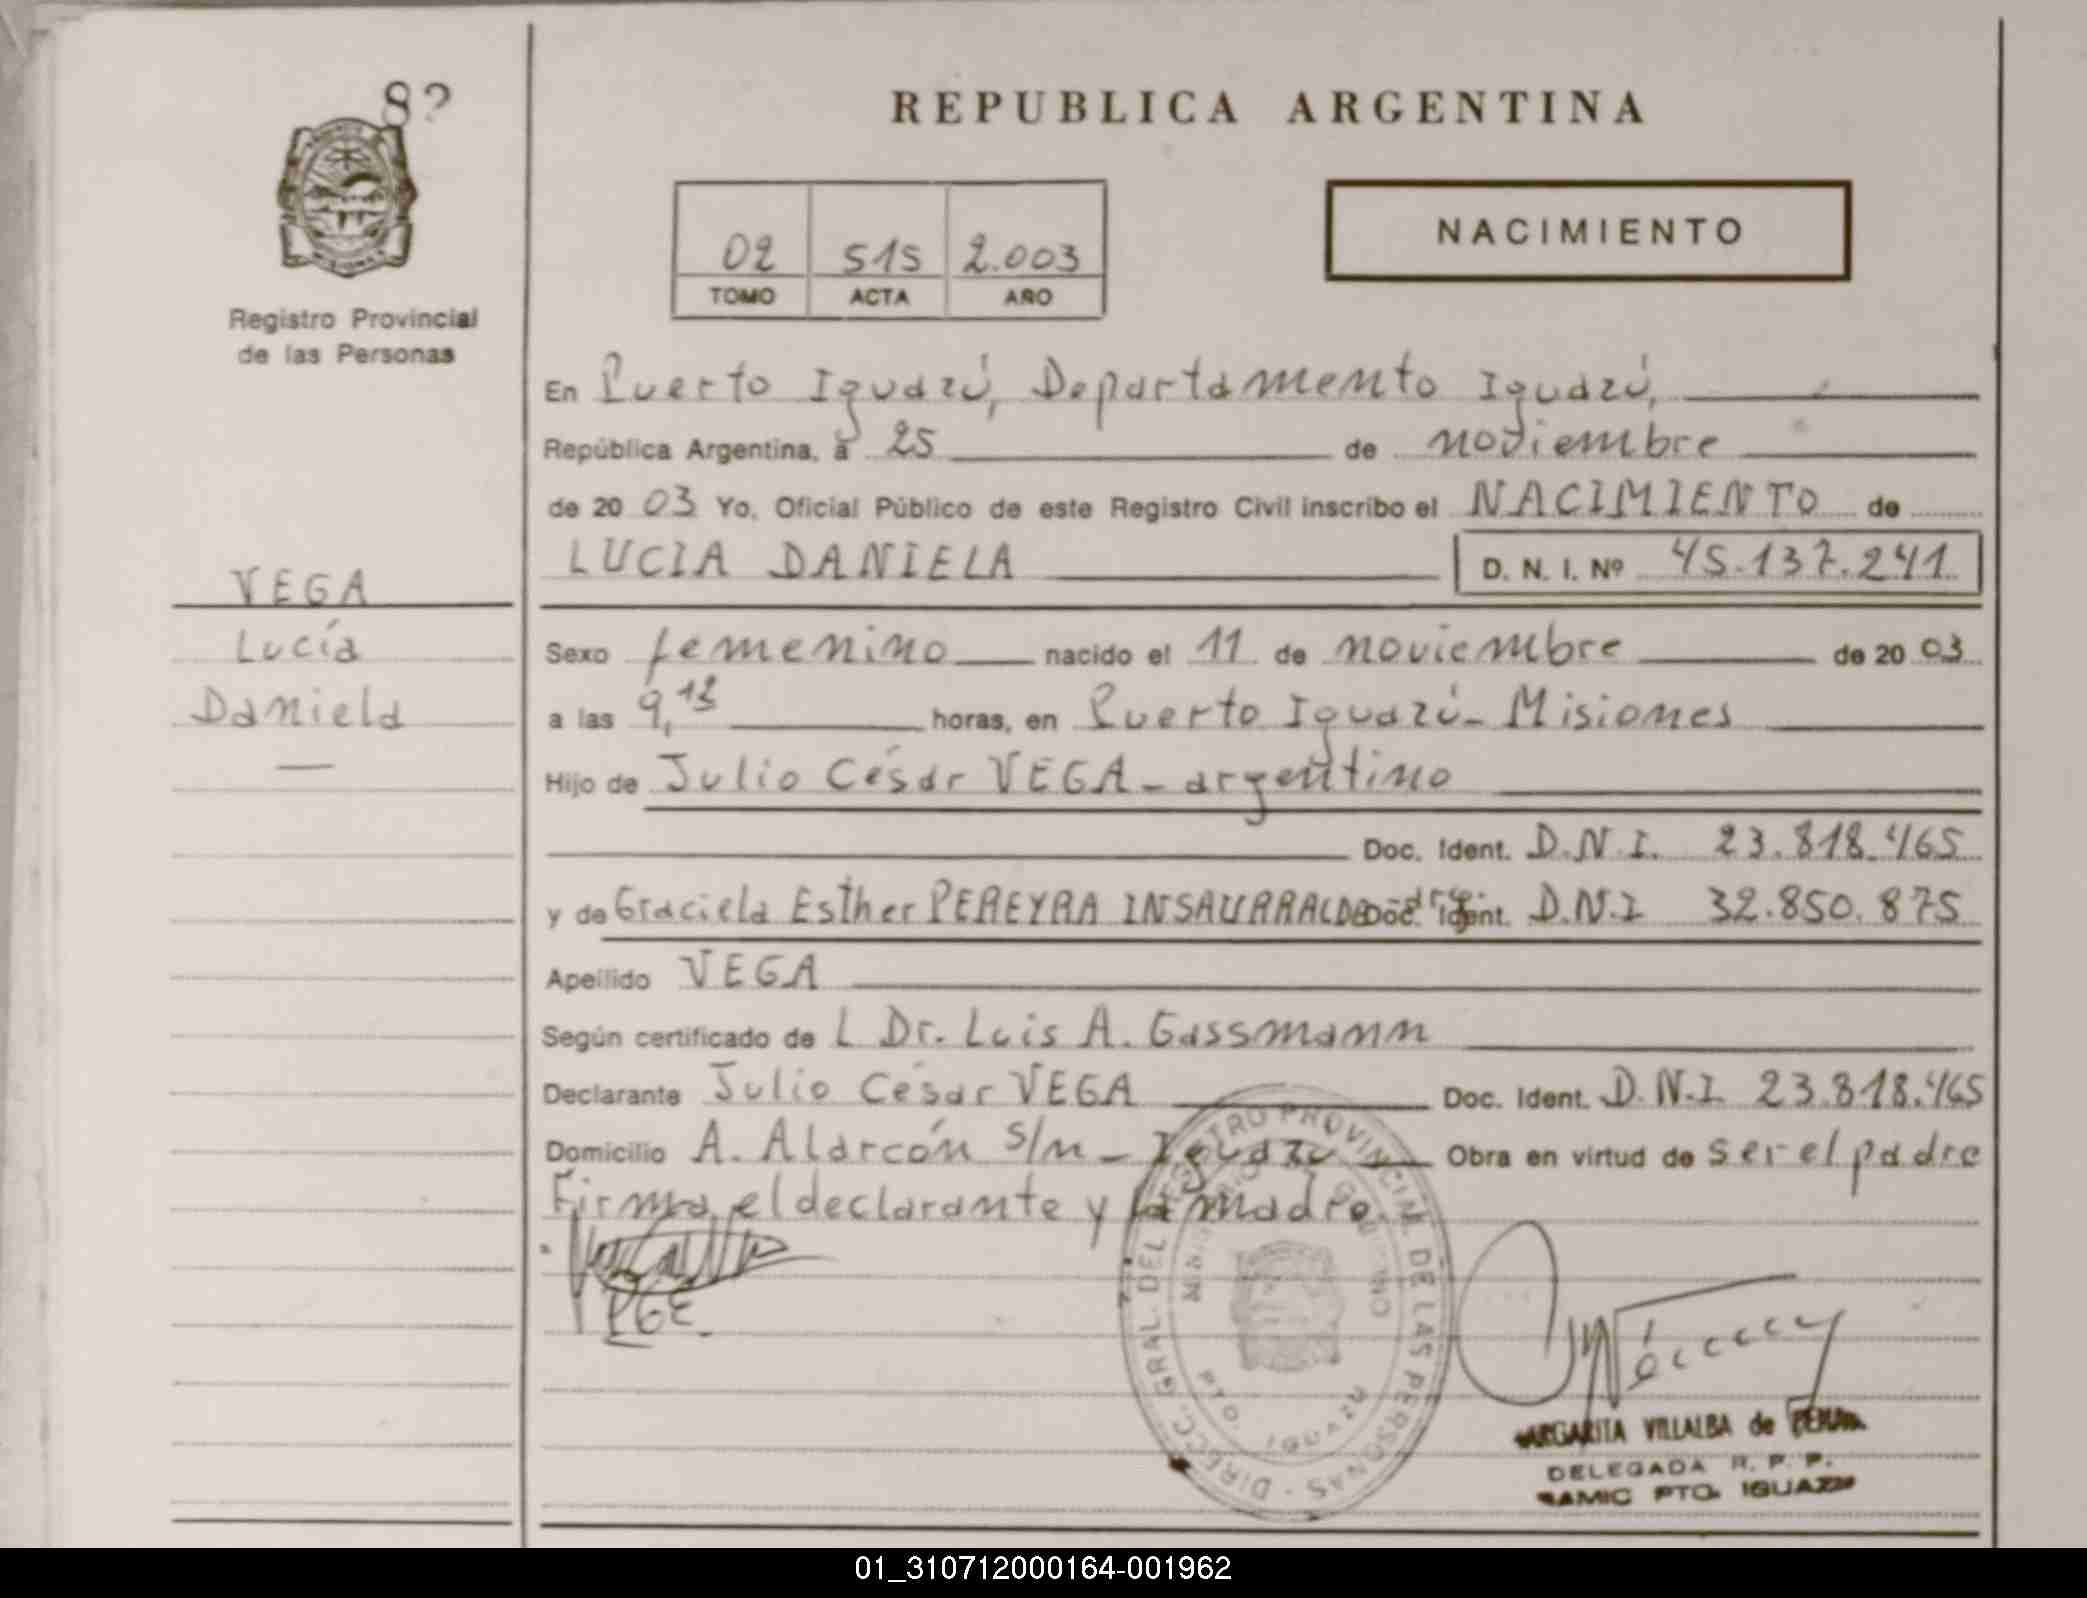 8?
REPUBLICA ARGENTINA
NACIMIENTO
02 515 2.003
TOMO ACTA AÑO
Registro Provincial
de las Personas
En Puerto Iguazú, Departamento Iguazú,
República Argentina, a 25 de noviembre
de 20 03 Yo, Oficial Público de este Registro Civil inscribo el NACIMIENTO de
LUCIA DANIELA D. N. I. Nº 45.137.241
VEGA
Lucía
Daniela
Sexo femenino nacido el 11 de noviembre de 20 03
a las 9,13 horas, en Puerto Iguazú - Misiones
Hijo de Julio César VEGA - argentino
Doc. Ident. D.N.I. 23.818.465
y de Graciela Esther PEREYRA INSAURRALDE Doc. Ident. D.N.I 32.850.875
Apellido VEGA
Según certificado de L Dr. Luis A. Gassmann
Declarante Julio César VEGA Doc. Ident. D.N.I. 23.818.465
Domicilio A. Alarcón s/n - Iguazú Obra en virtud de ser el padre
Firma el declarante y la madre.
PGE.
DIRECC. GRAL. DEL REGISTRO PROVINCIAL DE LAS PERSONAS
MINISTERIO GOBIERNO
PTO. IGUAZU
MARGARITA VILLALBA de
DELEGADA R. P. P.
SAMIC PTO. IGUAZU
01_310712000164-001962